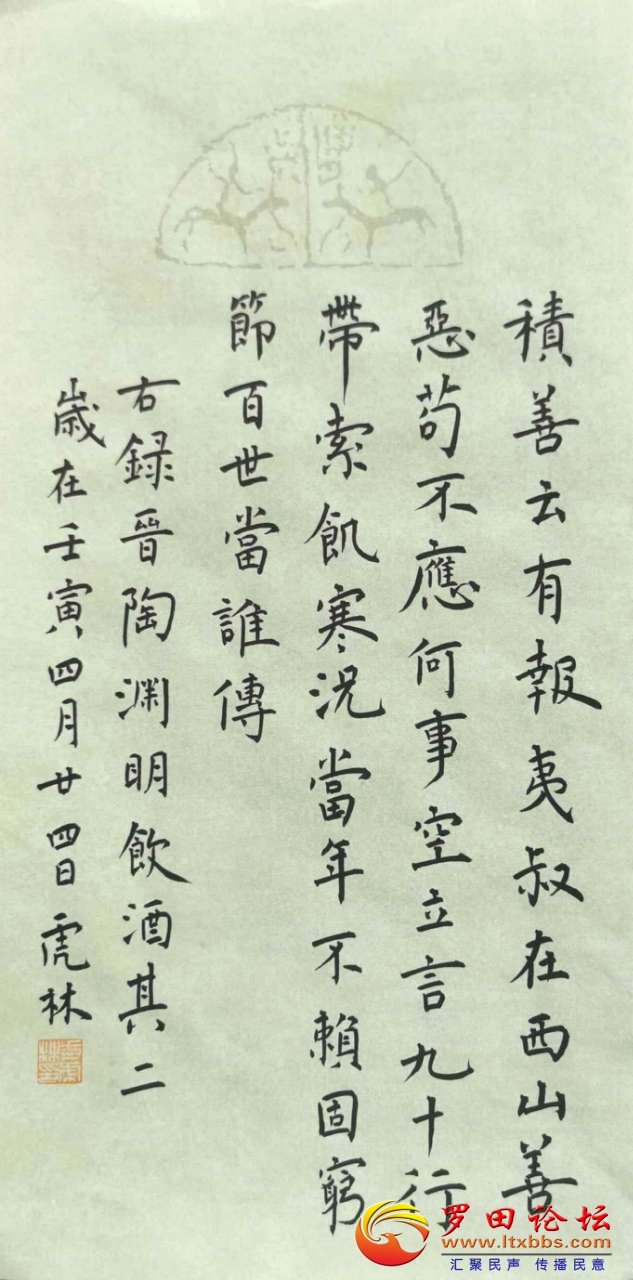 積善云有報夷叔在西山善
惡苟不應何事空立言九十行
帶索飢寒況當年不賴固窮
節百世當誰傳
右録晉陶渊明飲酒其二
歲在壬寅四月廿四日虎林
罗田论坛
www.ltxbbs.com
汇聚民声 传播民意